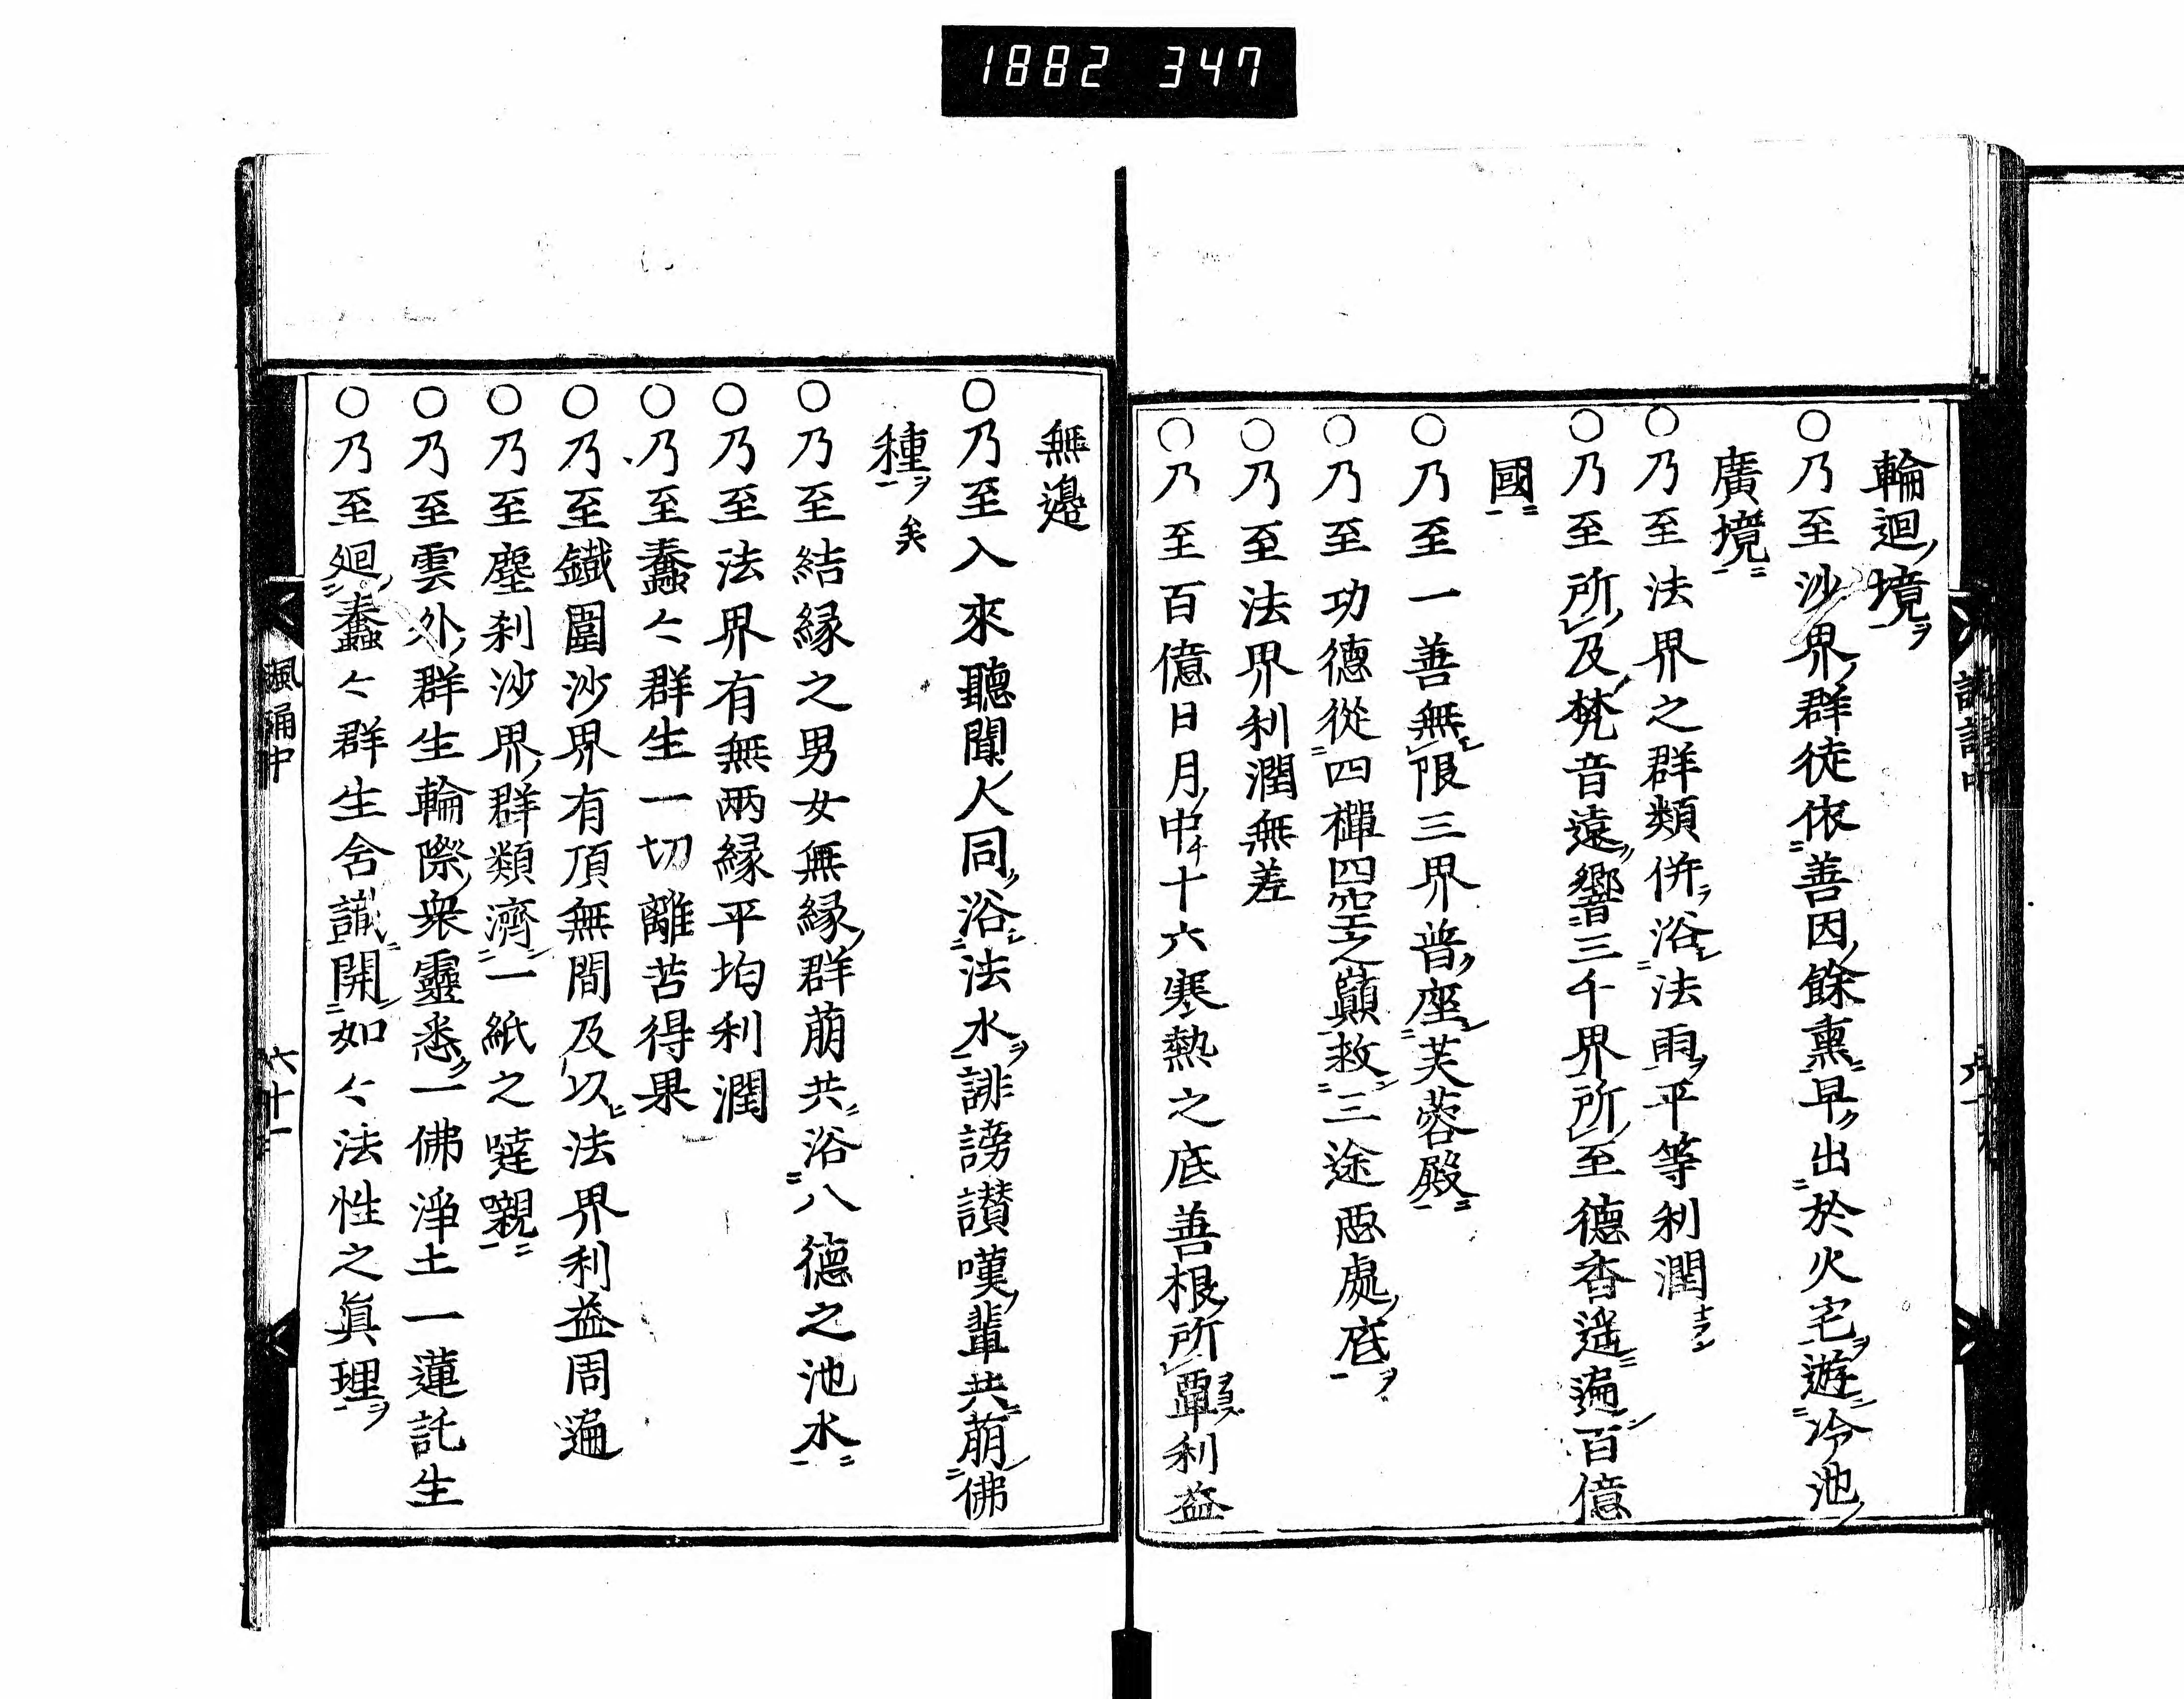 1882 347
輪迴ノ境ヲ
○乃至沙界ノ群徒依善因ノ餘熏ニ早ク出於火宅ヲ遊冷池ノ
廣境ニ
○乃至法界之群類併ラ浴シ法雨ノ平等利潤
○乃至所ノ及梵音遠ク響三千界所ノ至德香遙ニ遍シ百億
國ニ
○乃至一善無シ限三界普ク座シ芙蓉殿ニ
○乃至功德從四禪四空之巔救三途惡處ノ底ヲ
○乃至法界利潤無差
○乃至百億日月ノ中十六寒熱之底善根ノ所覃利益
無邊
○乃至入來聽聞ノ人同ク浴シ法水ヲ誹謗讃嘆ノ輩共ニ萠シ佛
種ヲ矣
○乃至結縁之男女無縁ノ群萠共ニ浴八德之池水ニ
○乃至法界有無兩縁平均利潤
○乃至蠢〻群生一切離苦得果
○乃至鐵圍沙界有頂無間及以法界利益周遍
○乃至塵刹沙界ノ群類濟一紙之噠嚫ニ
○乃至雲外ノ群生輪際ノ衆靈悉ク一佛淨土一蓮託生
○乃至廻蠢〻群生含識開如〻法性之眞理ヲ
諷誦中 六十一